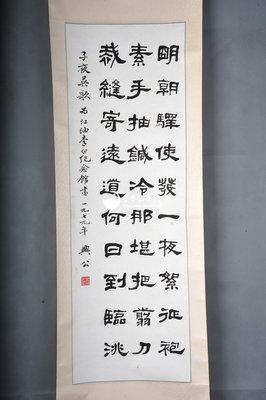 明朝驛使發一夜絮征袍
素手抽鍼冷那堪把翦刀
裁縫寄遠道何日到臨洮
子夜吳歌 为江油李白纪念館書 一九七九年 興公